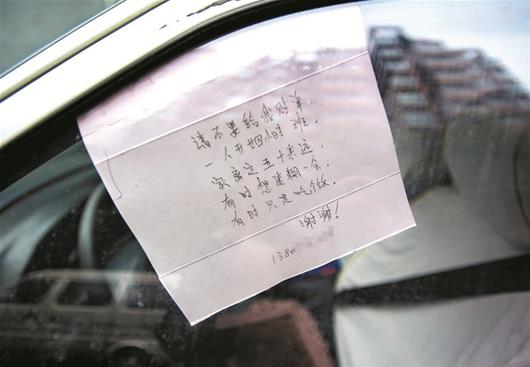 请不要给我贴单
一人开四小时
家离这五十米远.
有时想迷糊一会.
有时只是吃饭.
谢谢!
1380